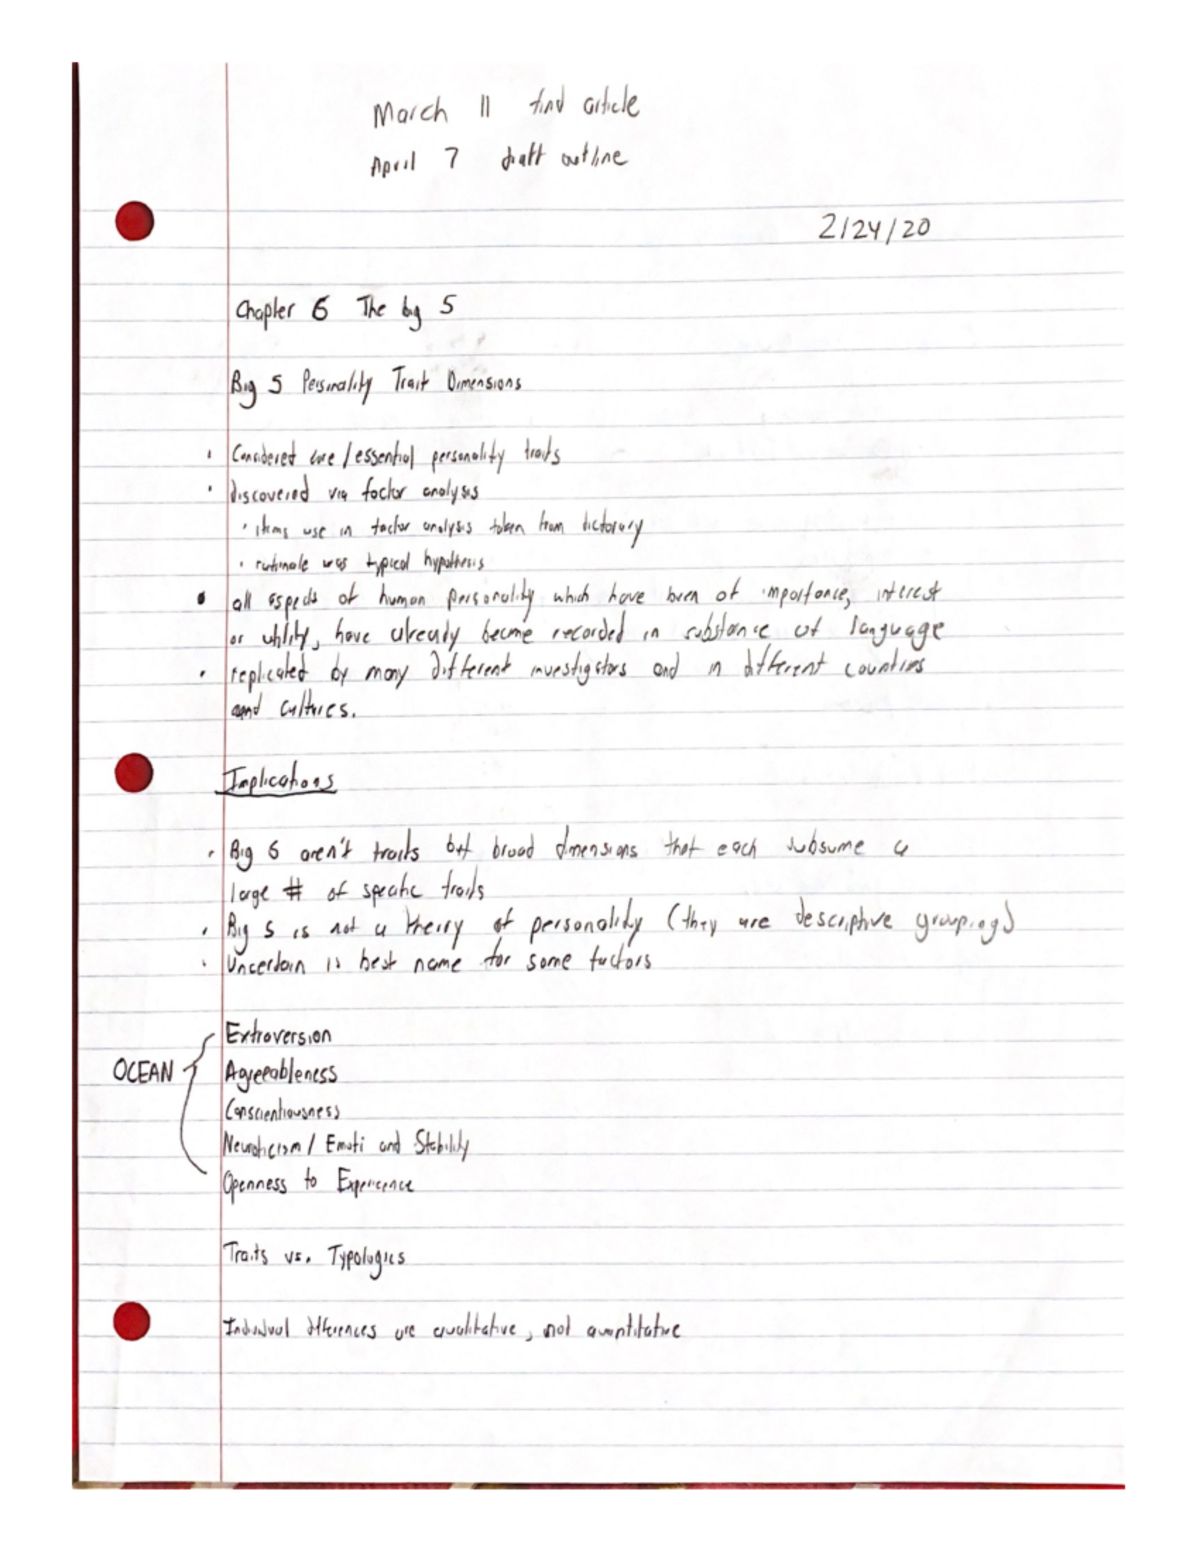 March 11 find article
April 7 draft outline
2/24/20
Chapter 6 The big 5
Big 5 Personality Trait Dimensions
· Considered core/essential personality traits
· discovered via factor analysis
· items use in factor analysis taken from dictonary
· rationale was typical hypothesis
• all aspects of human personality which have been of importance, interest
or utility, have already become recorded in substance of language
· replicated by many different investigators and in different countries
and cultures.
Implications
· Big 5 aren't traits but broad dimensions that each subsume a
large # of specific traits
· Big 5 is not a theory of personality (they are descriptive groupings)
· Uncertain is best name for some factors
Extroversion
OCEAN Agreeableness
Conscientiousness
Neuroticism / Emoti and Stability
Openness to Experience
Traits vs. Typologies
Individual differences are qualitative, not quantitative